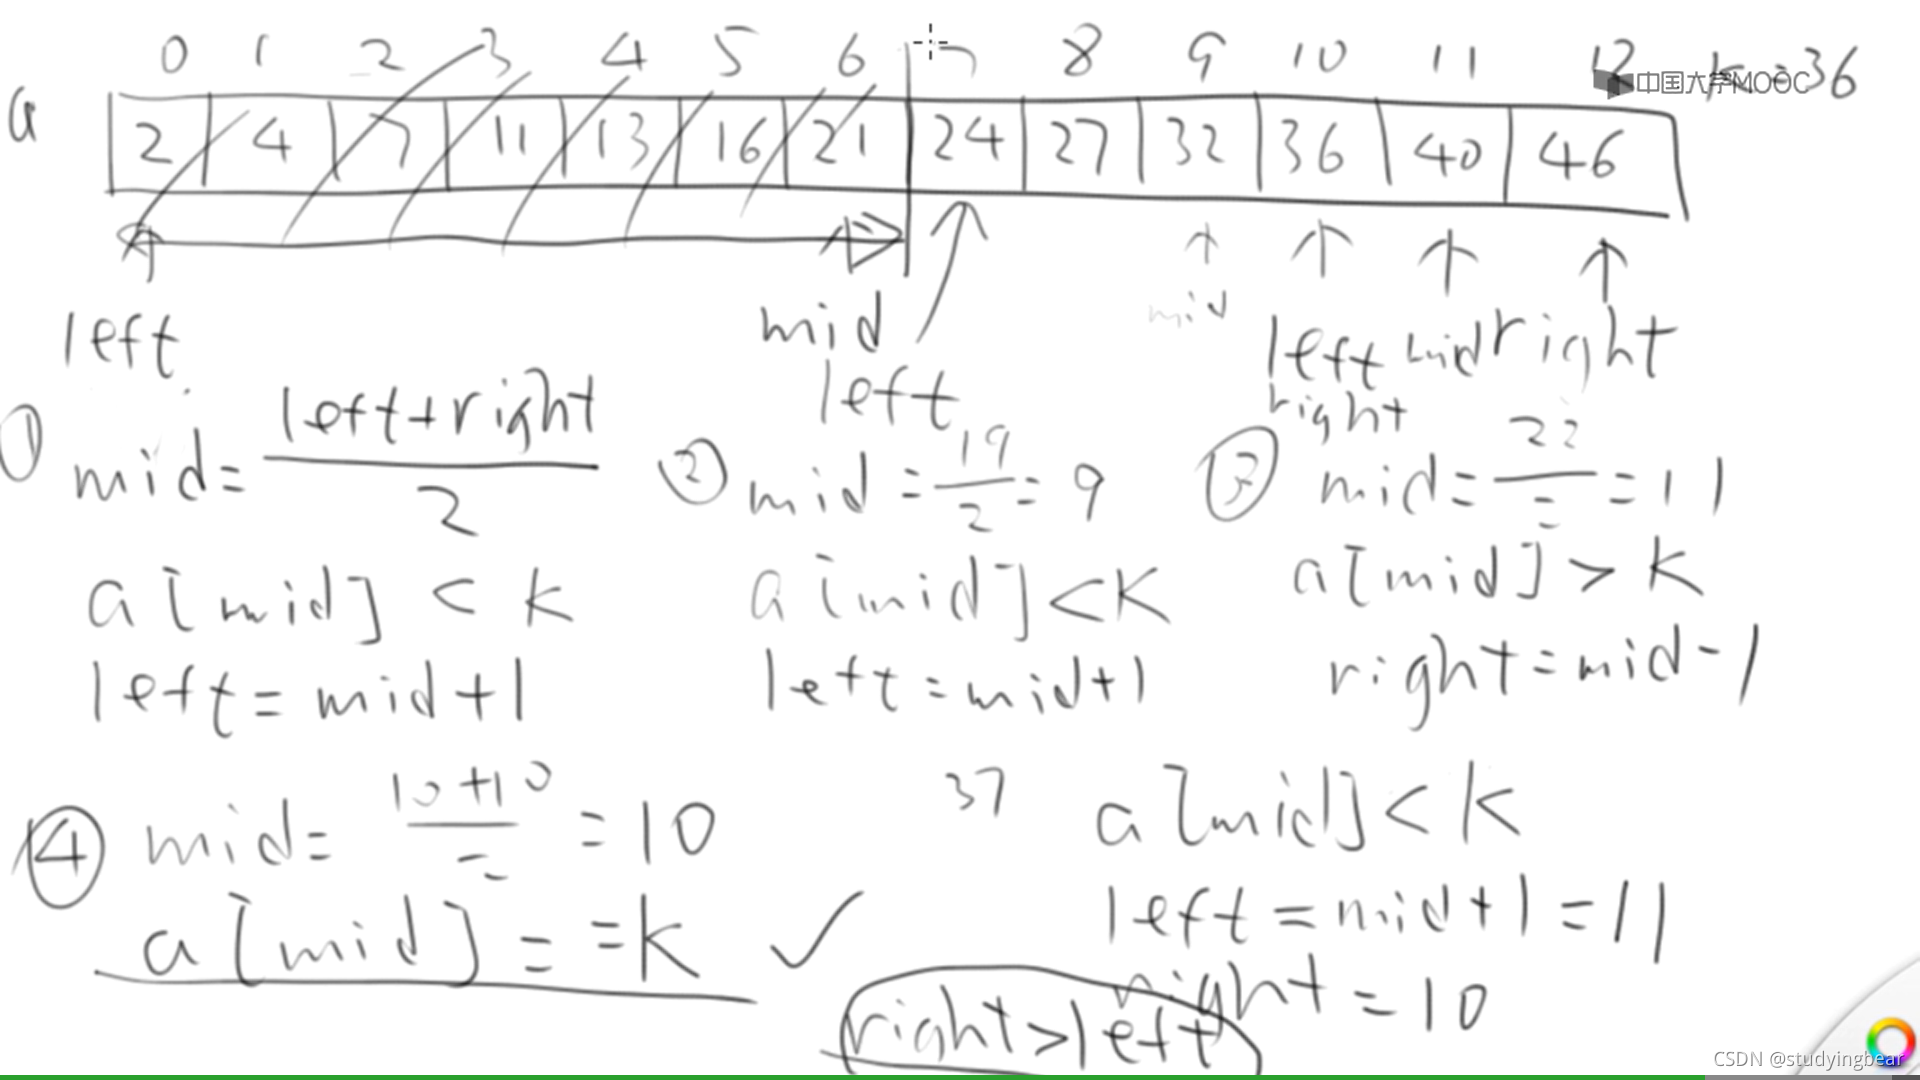 0 1 2 3 4 5 6 7 8 9 10 11 12 k=36
中国大学MOOC
a 2 4 7 11 13 16 21 24 27 32 36 40 46
left mid mid left mid right
left right
① mid = left+right / 2
② mid = 19 / 2 = 9
③ mid = 22 / 2 = 11
a[mid] < k
a[mid] < k
a[mid] > k
left = mid+1
left = mid+1
right = mid-1
④ mid = 10+10 / 2 = 10
37 a[mid] < k
a[mid] == k ✓
left = mid+1 = 11
right = 10
right>left
CSDN @studyingbear